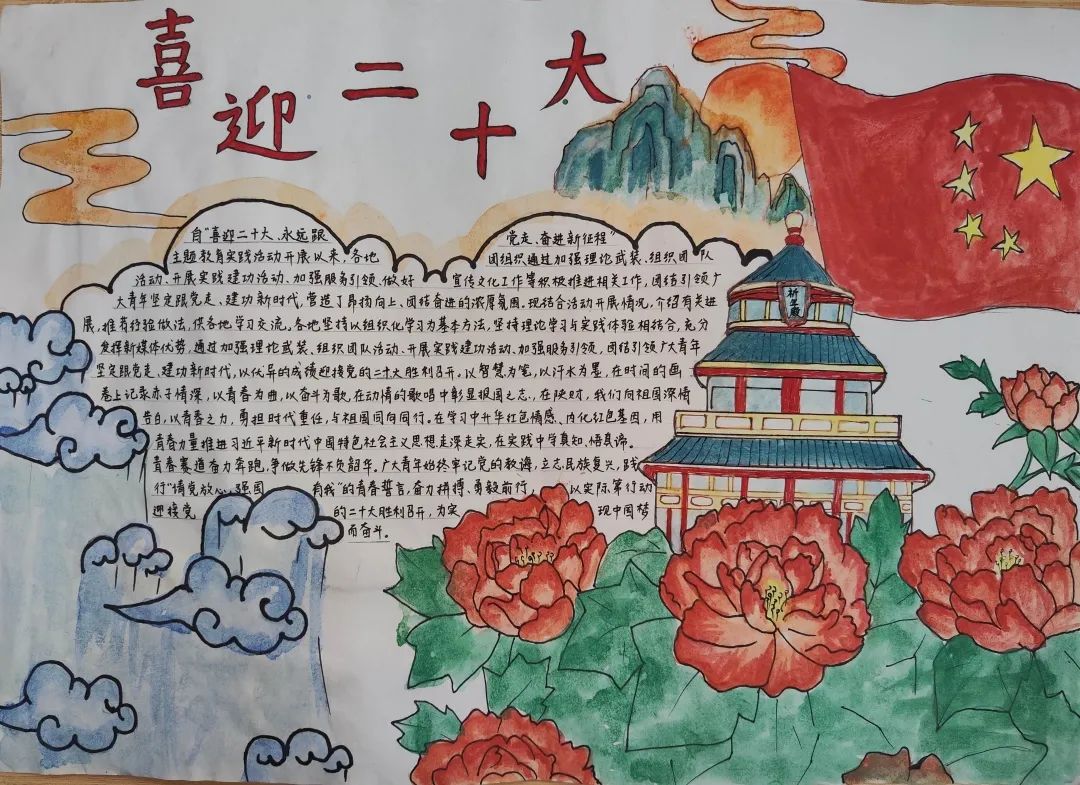 喜迎二十大
祈年殿
自“喜迎二十大、永远跟党走、奋进新征程”
主题教育实践活动开展以来，各地团组织通过加强理论武装、组织团队
活动、开展实践建功活动、加强服务引领，做好宣传文化工作等积极推进相关工作，团结引领广
大青年坚定跟党走、建功新时代，营造了昂扬向上、团结奋进的浓厚氛围。现结合活动开展情况，介绍有关进
展，推荐经验做法，供各地学习交流。各地坚持以组织化学习为基本方法，坚持理论学习与实践体验相结合，充分
发挥新媒体优势，通过加强理论武装、组织团队活动、开展实践建功活动、加强服务引领，团结引领广大青年
坚定跟党走、建功新时代，以优异的成绩迎接党的二十大胜利召开。以智慧为笔，以汗水为墨，在时间的画
卷上记录赤子情深，以青春为曲，以奋斗为歌，在动情的歌唱中彰显报国之志，在陕财，我们向祖国深情
告白，以青春之力，勇担时代重任，与祖国同向同行。在学习中升华红色情感、内化红色基因，用
青春力量推进习近平新时代中国特色社会主义思想走深走实，在实践中学真知、悟真谛。
青春赛道奋力奔跑，争做先锋不负韶华。广大青年始终牢记党的教诲，立志民族复兴，践
行“请党放心、强国有我”的青春誓言，奋力拼搏、勇毅前行，以实际行动
迎接党的二十大胜利召开，为实现中国梦
而奋斗。